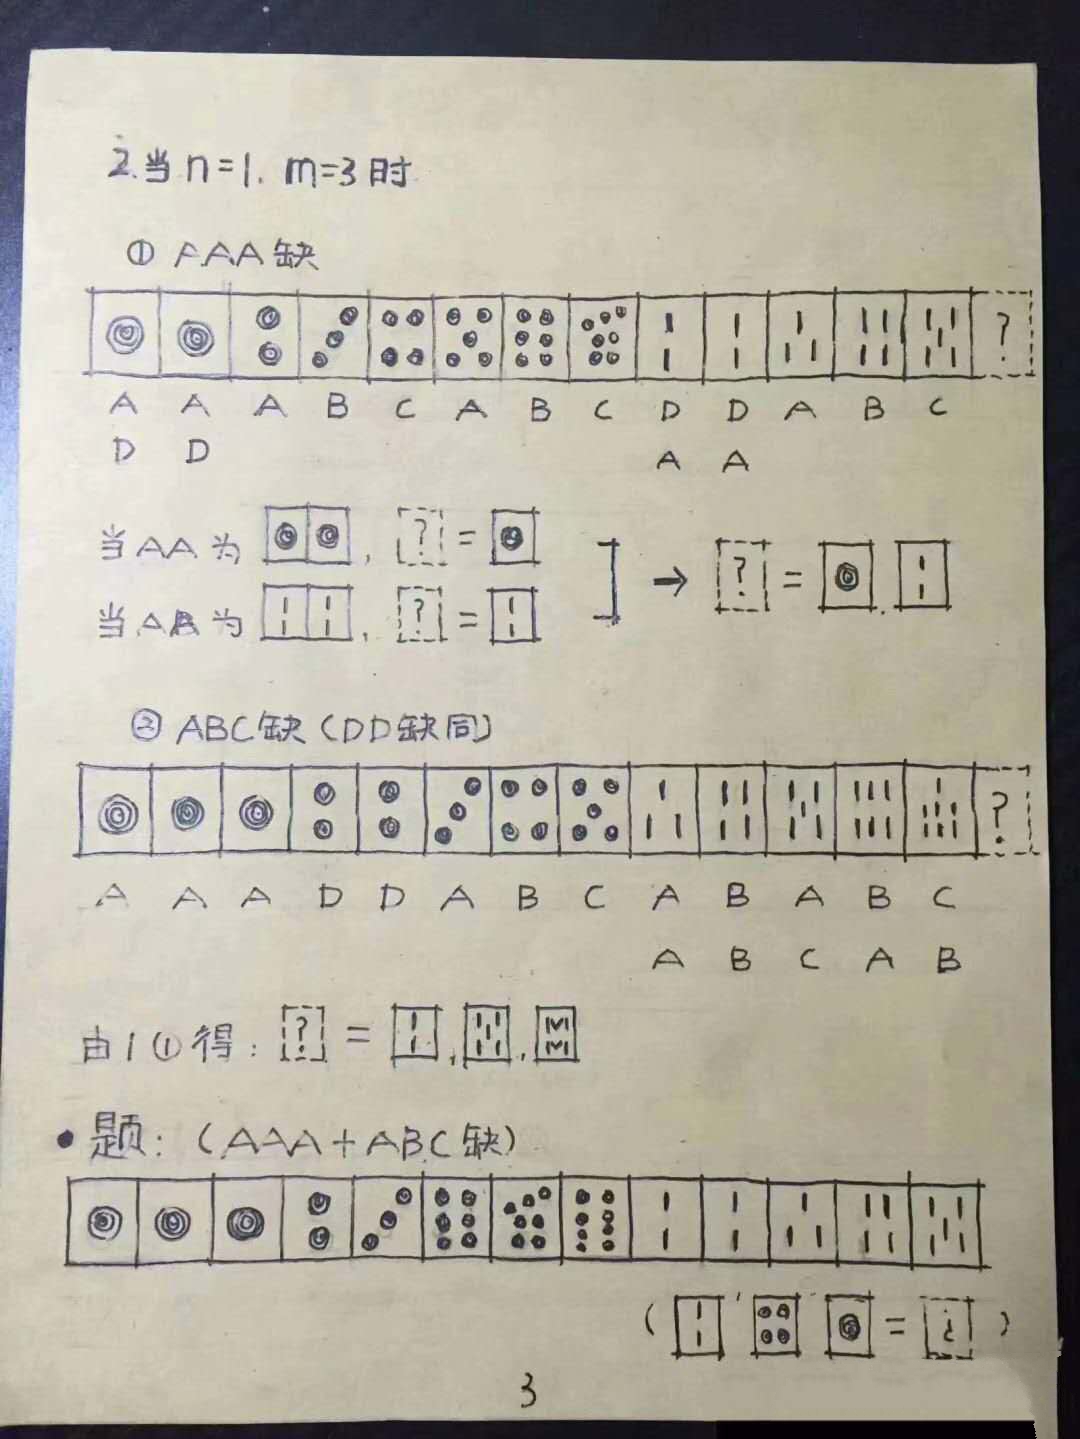 2.当 n=1. m=3 时
① AAA 缺
?
A A A B C A B C D D A B C
D D A A
当 AA 为 , ? =
→ ? = .
当 AB 为 , ? =
② ABC 缺 (DD 缺同)
?
A A A D D A B C A B A B C
A B C A B
由 1 ① 得: ? = , ,
• 题: (AAA+ABC 缺)
( , = ? )
3